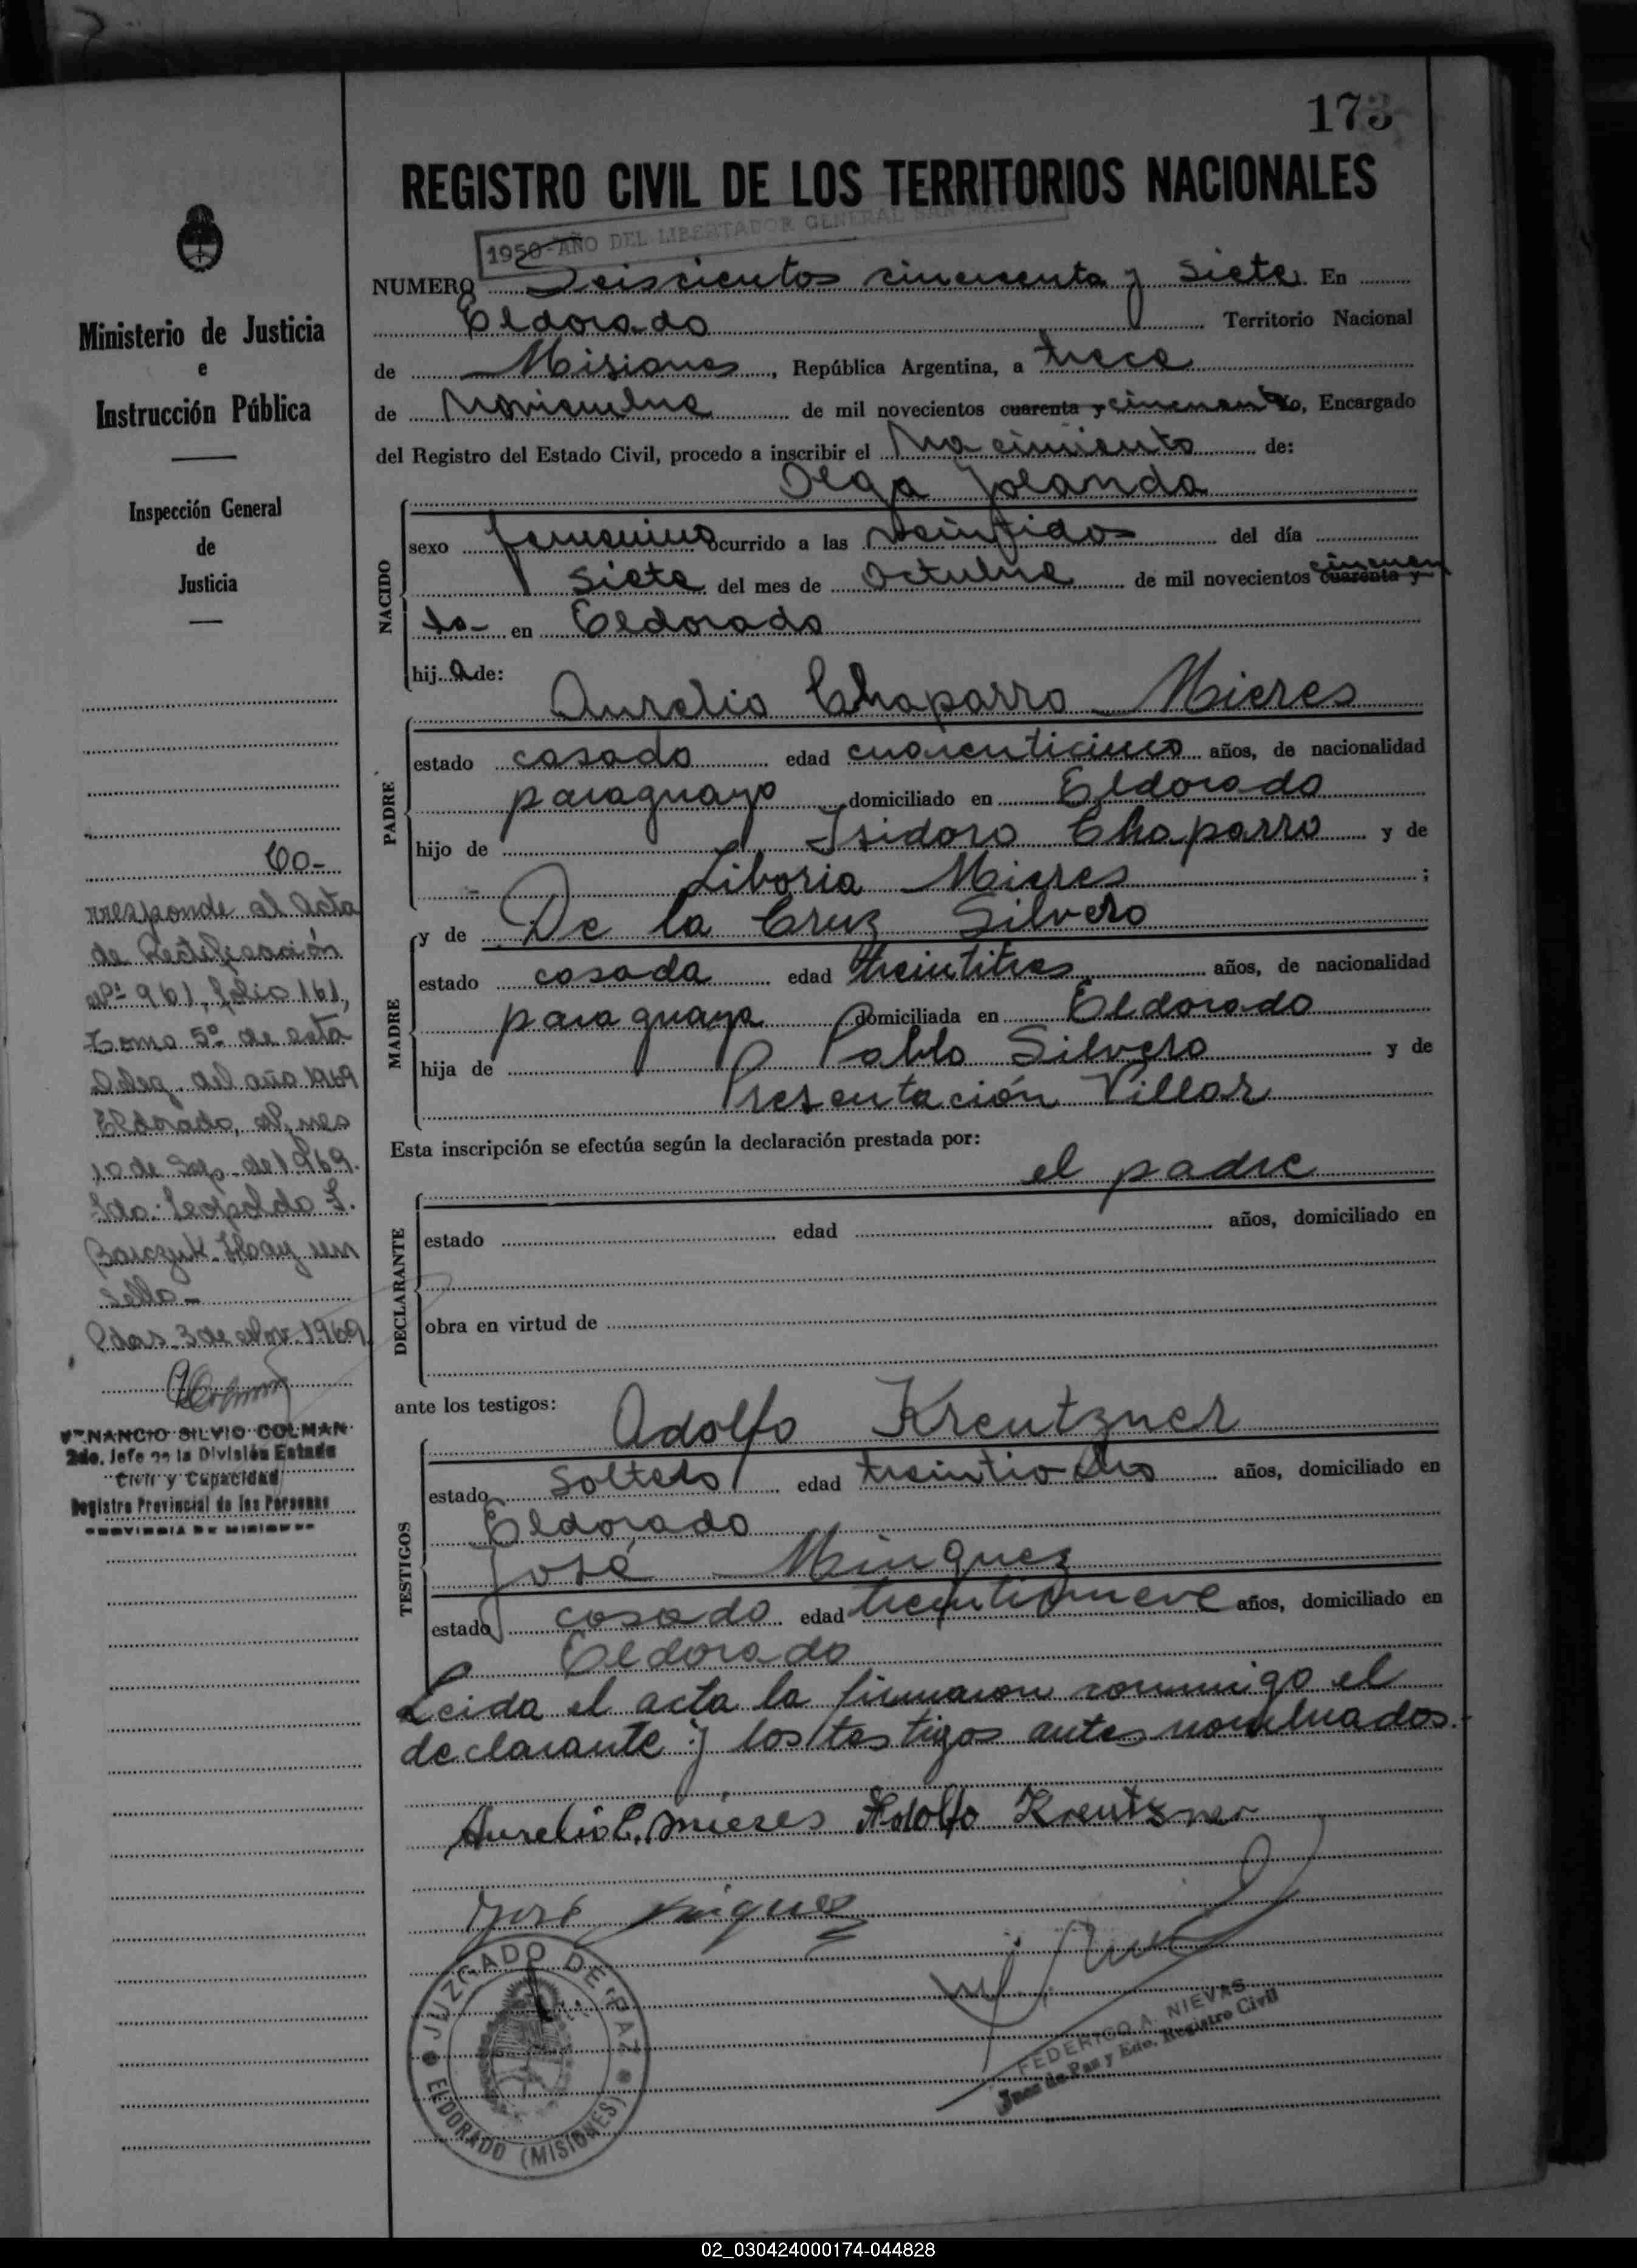 173
REGISTRO CIVIL DE LOS TERRITORIOS NACIONALES
1950-AÑO DEL LIBERTADOR GENERAL SAN MARTIN
NUMERO Seiscientos cincuenta y siete En
Eldorado Territorio Nacional
de Misiones, República Argentina, a trece
de Noviembre de mil novecientos cuarenta y cincuenta Yo, Encargado
del Registro del Estado Civil, procedo a inscribir el Nacimiento de:
Olga Yolanda
NACIDO
sexo femenino ocurrido a las veintidos del día
siete del mes de Octubre de mil novecientos cuarenta y cincuen
ta- en Eldorado
hij a de:
PADRE
Aurelio Chaparro Mieres
estado casado edad cuarenticinco años, de nacionalidad
paraguayo domiciliado en Eldorado
hijo de Isidoro Chaparro y de
Liboria Mieres ;
MADRE
y de De la Cruz Silvero
estado casada edad treintitres años, de nacionalidad
paraguaya domiciliada en Eldorado
hija de Pablo Silvero y de
Presentación Villar
Esta inscripción se efectúa según la declaración prestada por:
el padre
DECLARANTE
estado edad años, domiciliado en
obra en virtud de
ante los testigos:
TESTIGOS
Adolfo Kreutzner
estado soltero edad treintiocho años, domiciliado en
Eldorado
José Minguez
estado casado edad treintinueve años, domiciliado en
Eldorado
Leida el acta la firmaron conmigo el
declarante y los testigos antes nombrados.
Aurelio C. Mieres Adolfo Kreutzner
José Minguez
JUZGADO DE PAZ
ELDORADO (MISIONES)
FEDERICO A. NIEVAS
Juez de Paz y Edo. Registro Civil
Ministerio de Justicia
e
Instrucción Pública
Inspección General
de
Justicia
Co-
rresponde al Acta
de Rectificación
Nº 961, folio 161,
Tomo 5º de esta
Deleg. del año 1969
Eldorado, Mnes
10 de Sep. de 1969.
Fdo: Leopoldo F.
Barczuk. Hay un
sello-
Pdas. 3 de Nov. 1969.
VENANCIO SILVIO COLMAN
2do. Jefe de la División Estado
Civil y Capacidad
Registro Provincial de las Personas
PROVINCIA DE MISIONES
02_030424000174-044828